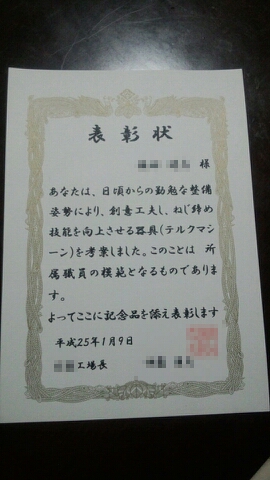 表彰状
様
あなたは、日頃からの勤勉な整備
姿勢により、創意工夫し、ねじ締め
技能を向上させる器具(テルクマシ
ーン)を考案しました。このことは 所
属職員の模範となるものでありま
す。
よってここに記念品を添え表彰します
平成25年1月9日
工場長